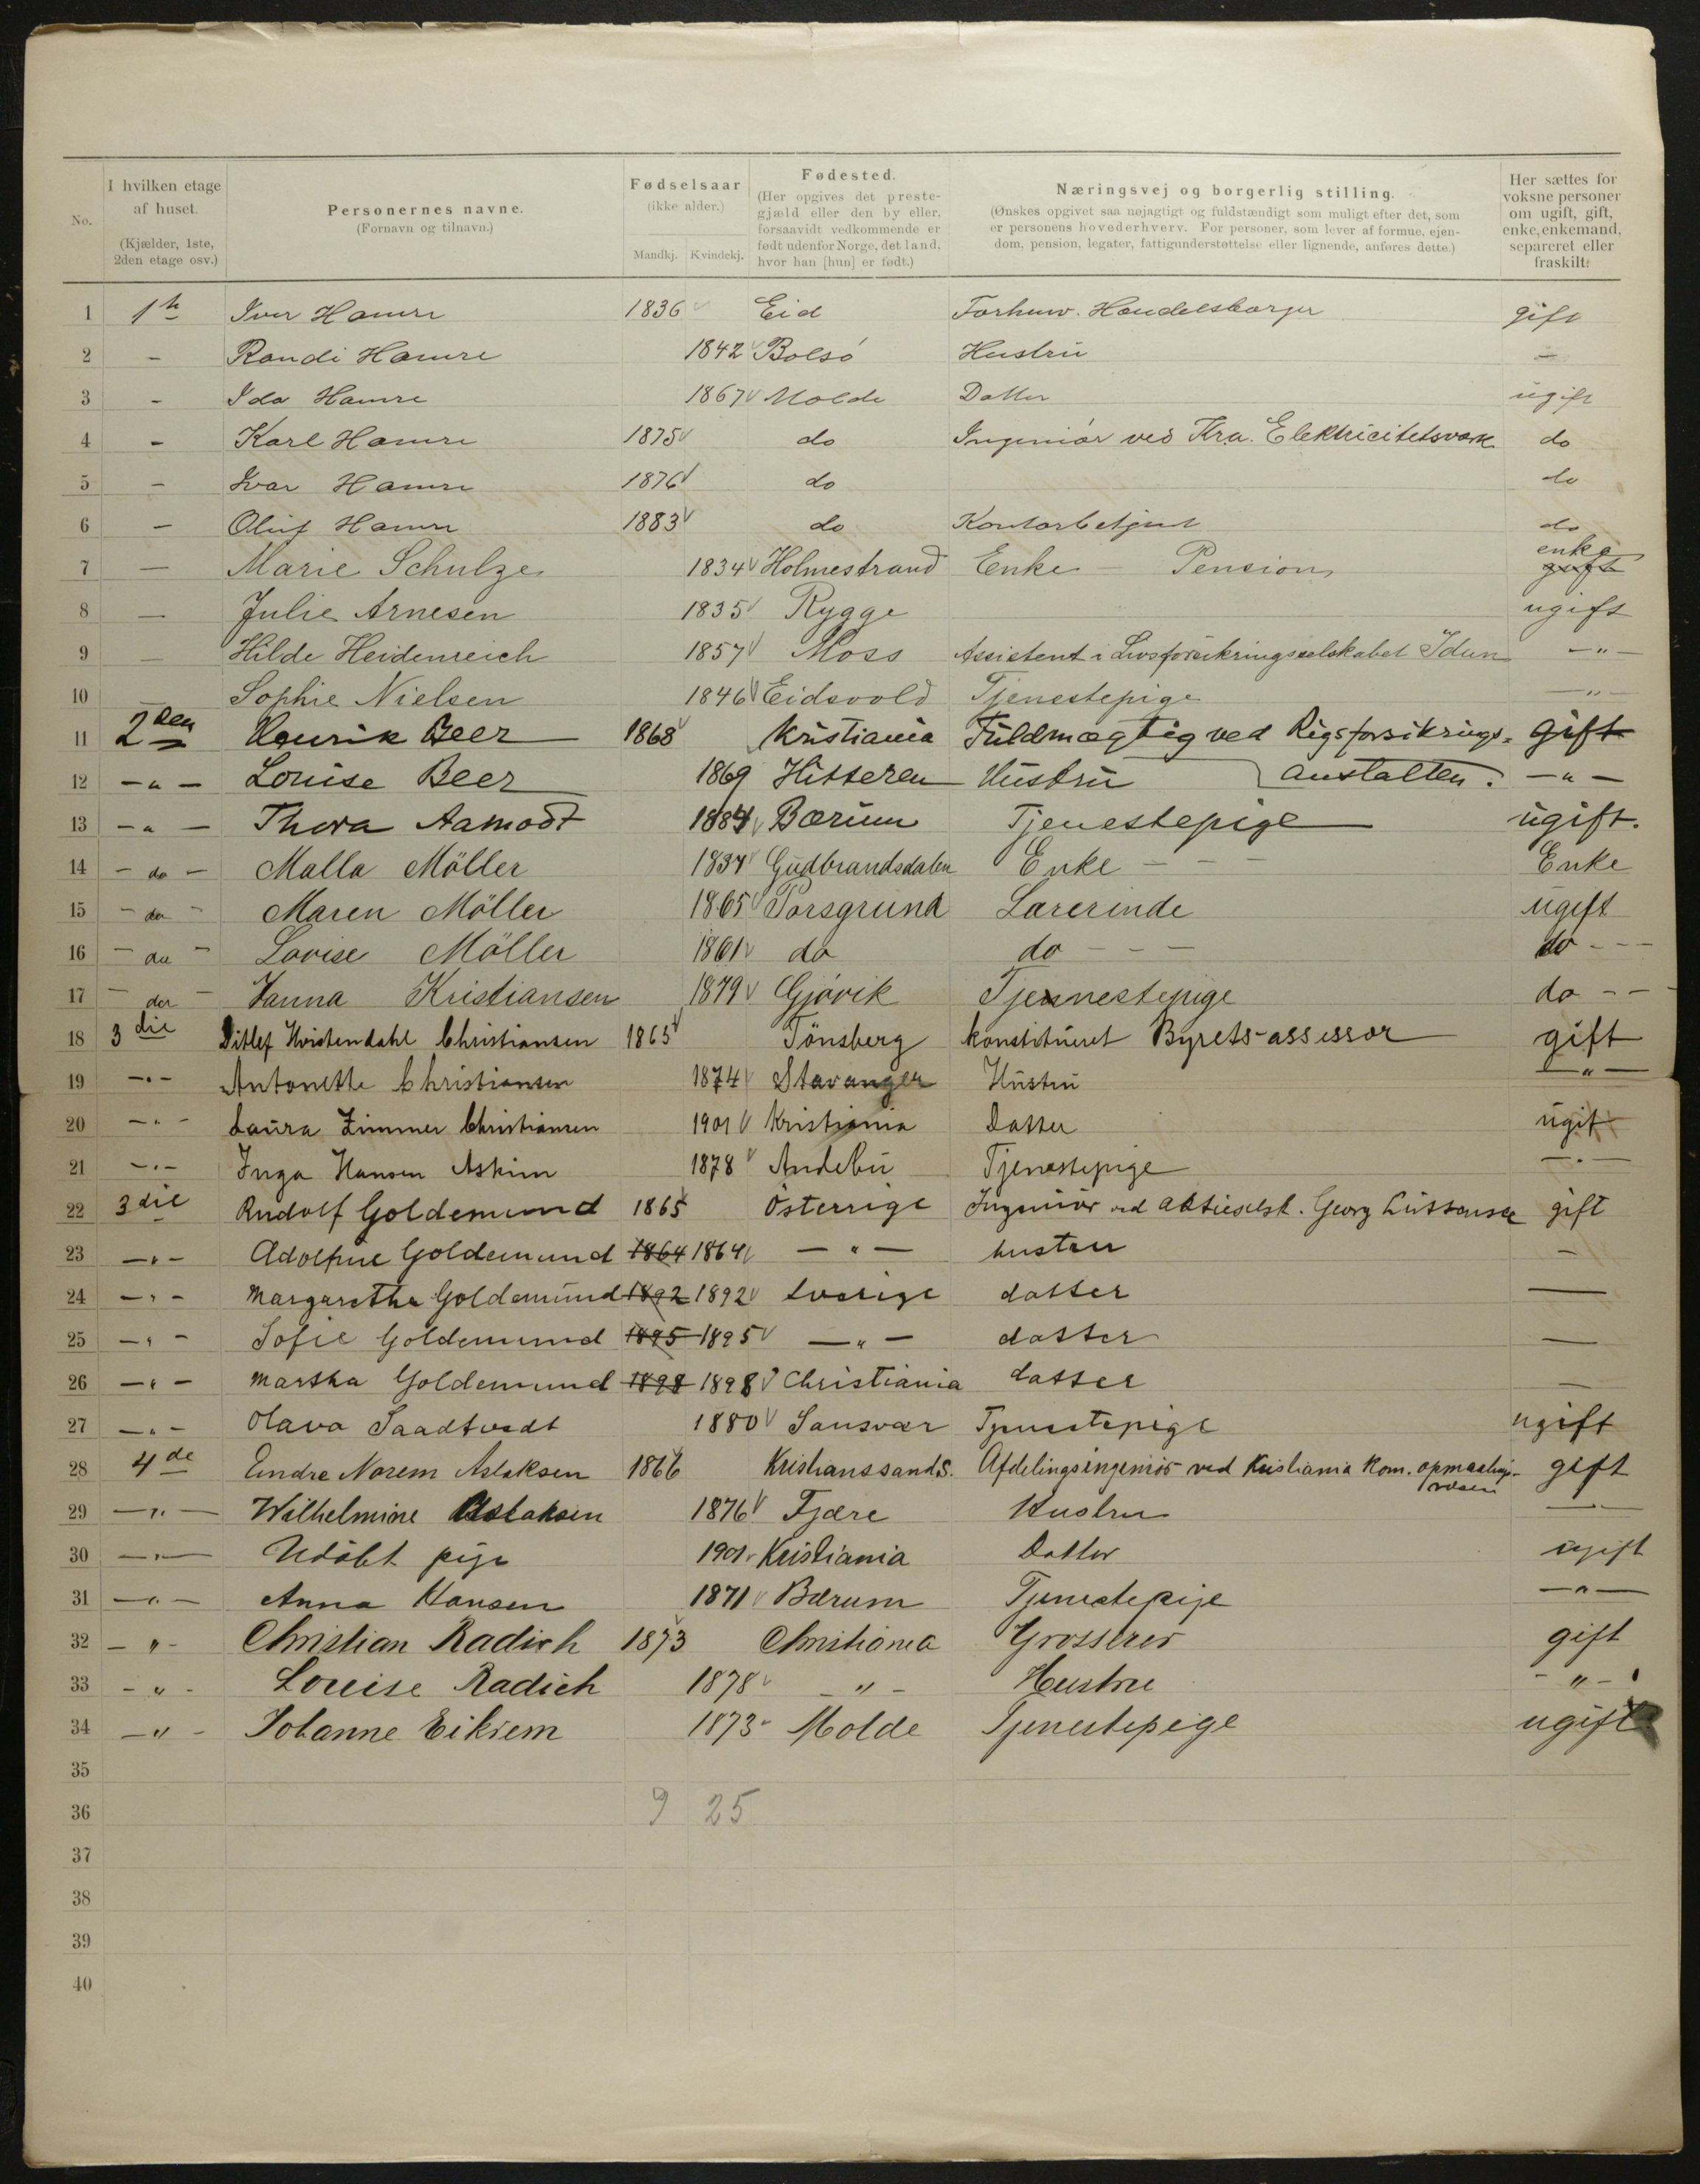 No. | I hvilken etage af huset. (Kjælder, 1ste, 2den etage osv.) | Personernes navne. (Fornavn og tilnavn.) | Fødselsaar (ikke alder.) Mandkj. Kvindekj. | Fødested. (Her opgives det prestegjæld eller den by eller, forsaavidt vedkommende er født udenfor Norge, det land, hvor han [hun] er født.) | Næringsvej og borgerlig stilling. (Ønskes opgivet saa nøjagtigt og fuldstændigt som muligt efter det, som er personens hovederhverv. For personer, som lever af formue, ejendom, pension, legater, fattigunderstøttelse eller lignende, anføres dette.) | Her sættes for voksne personer om ugift, gift, enke, enkemand, separeret eller fraskilt:
1 1ste Iver Hamre 1836 Eid Forhenv. Handelsborger gift
2 - Randi Hamre 1842 Bolsö Hustru -
3 - Ida Hamre 1867 Molde Datter ugift
4 - Karl Hamre 1875 do Ingeniör ved Kra. Elektricitetsværk do
5 - Ivar Hamre 1876 do do
6 - Oluf Hamre 1883 do Kontorbetjent do
7 - Marie Schulze 1834 Holmestrand Enke - Pension enke gift
8 - Julie Arnesen 1835 Rygge ugift
9 - Hilde Heidenreich 1857 Moss Assistent i Livsforsikringsselskabet Idun -"-
10 - Sophie Nielsen 1846 Eidsvold Tjenestepige -"-
11 2den Henrik Beer 1868 Kristiania Fuldmægtig ved Rigsforsikrings- gift
12 -"- Louise Beer 1869 Hitteren Hustru anstalten. -"-
13 -"- Thora Aamodt 1884 Bærum Tjenestepige ugift.
14 - do - Malla Möller 1834 Gudbrandsdalen Enke - - - Enke
15 - do - Maren Möller 1865 Porsgrund Lærerinde ugift
16 - do - Lovise Möller 1861 do do - - - do - - -
17 - do - Hanna Kristiansen 1879 Gjövik Tjennestepige do - - -
18 3die Ditlef Hvistendahl Christiansen 1865 Tönsberg konstitueret Byrets-assessor gift
19 -"- Antonette Christiansen 1874 Stavanger Hustru -"-
20 -"- Laura Zimmer Christiansen 1901 Kristiania Datter ugift
21 -"- Inga Hansen Askim 1878 Andebu Tjenestepige -"-
22 3die Rudolf Goldemund 1865 Österrige Ingeniör ved aktieselsk. Georg gift
23 -"- Adolfine Goldemund 1864 1864 -"- hustru -
24 -"- Margaretha Goldemund 1892 1892 Sverige datter -
25 -"- Sofie Goldemund 1895 1895 -"- datter -
26 -"- Martha Goldemund 1898 1898 Christiania datter -
27 -"- Olava Saadtvedt 1880 Sansvær Tjenestepige ugift
28 4de Endre Norem Aslaksen 1866 Kristianssand S. Afdelingsingeniør ved Kristiania Kom. opmaalings- gift
væsen
29 -"- Wilhelmine Aslaksen 1876 Fjære Hustru -"-
30 -"- Udöbt pige 1901 Kristiania Datter ugift
31 -"- Anna Hansen 1871 Bærum Tjenestepige -"-
32 -"- Christian Radich 1873 Christiania Grosserer gift
33 -"- Louise Radich 1878 -"- Hustru -"-
34 -"- Johanne Eikrem 1873 Molde Tjenestepige ugift
35
36 9 25
37
38
39
40